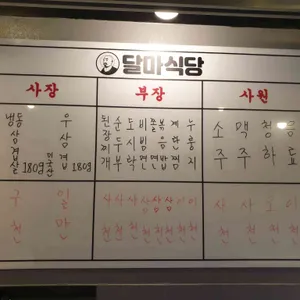 달마식당
사장
부장
사원
냉동삼겹살 180g
우삼겹 180g
순두부
도시락
비빔면
쫄면
볶음밥
계란찜
누룽지
소주
맥주
청하
음료
구천
일만
사천
사천
사천
삼천
삼천
삼천
이천
이천
사천
사천
오천
이천